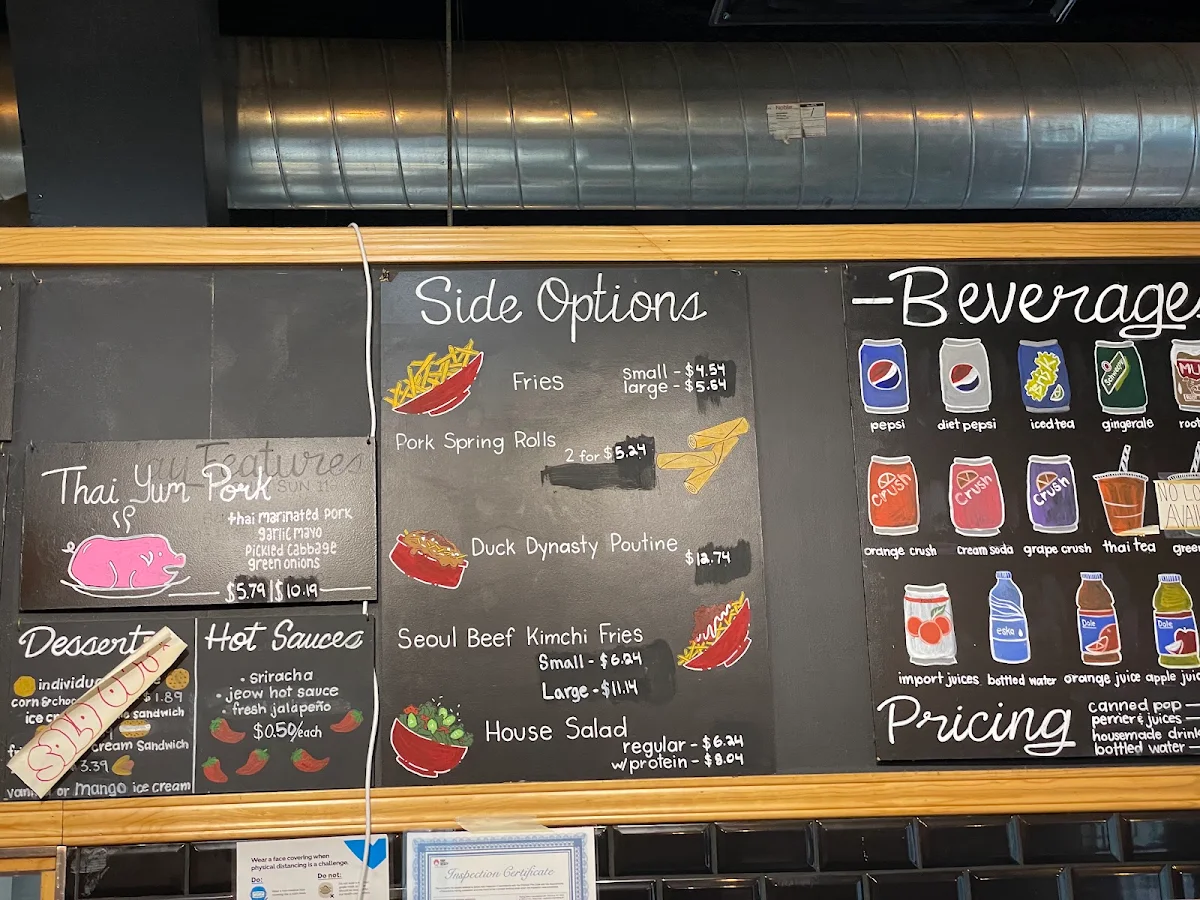 ay Features
SUN 1
Thai Yum Pork
thai marinated pork
garlic mayo
pickled cabbage
green onions
$5.79 | $10.19
Desserts
individu
corn & choc $1.89
ice sandwich
cream sandwich
3.39
or mango ice cream
SOLD OUT
Hot Sauces
• Sriracha
• jeow hot sauce
• fresh jalapeño
$0.50/each
Side Options
Fries
small - $4.54
large - $5.64
Pork Spring Rolls
2 for $5.24
Duck Dynasty Poutine
$12.74
Seoul Beef Kimchi Fries
Small - $6.24
Large - $11.14
House Salad
regular - $6.24
w/protein - $8.04
—Beverages
Brisk
Schweppes
MU
pepsi
diet pepsi
iced tea
gingerale
root
crush
crush
crush
NO LO
AVA
orange crush
cream soda
grape crush
thai tea
gree
eska
Dole
Dole
import juices
bottled water
orange juice
apple juic
Pricing
canned pop —
perrier & juices —
housemade drink
bottled water —
Wear a face covering when
physical distancing is a challenge.
Do:
Do not:
Inspection Certificate